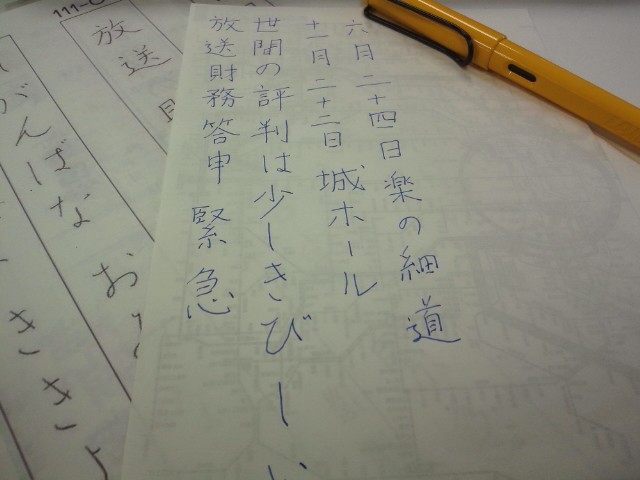 六月二十四日楽の細道
十一月二十二日城ホール
世間の評判は少しきびしい
放送財務答申緊急
111-0
放送
がんばな
お
ききょ